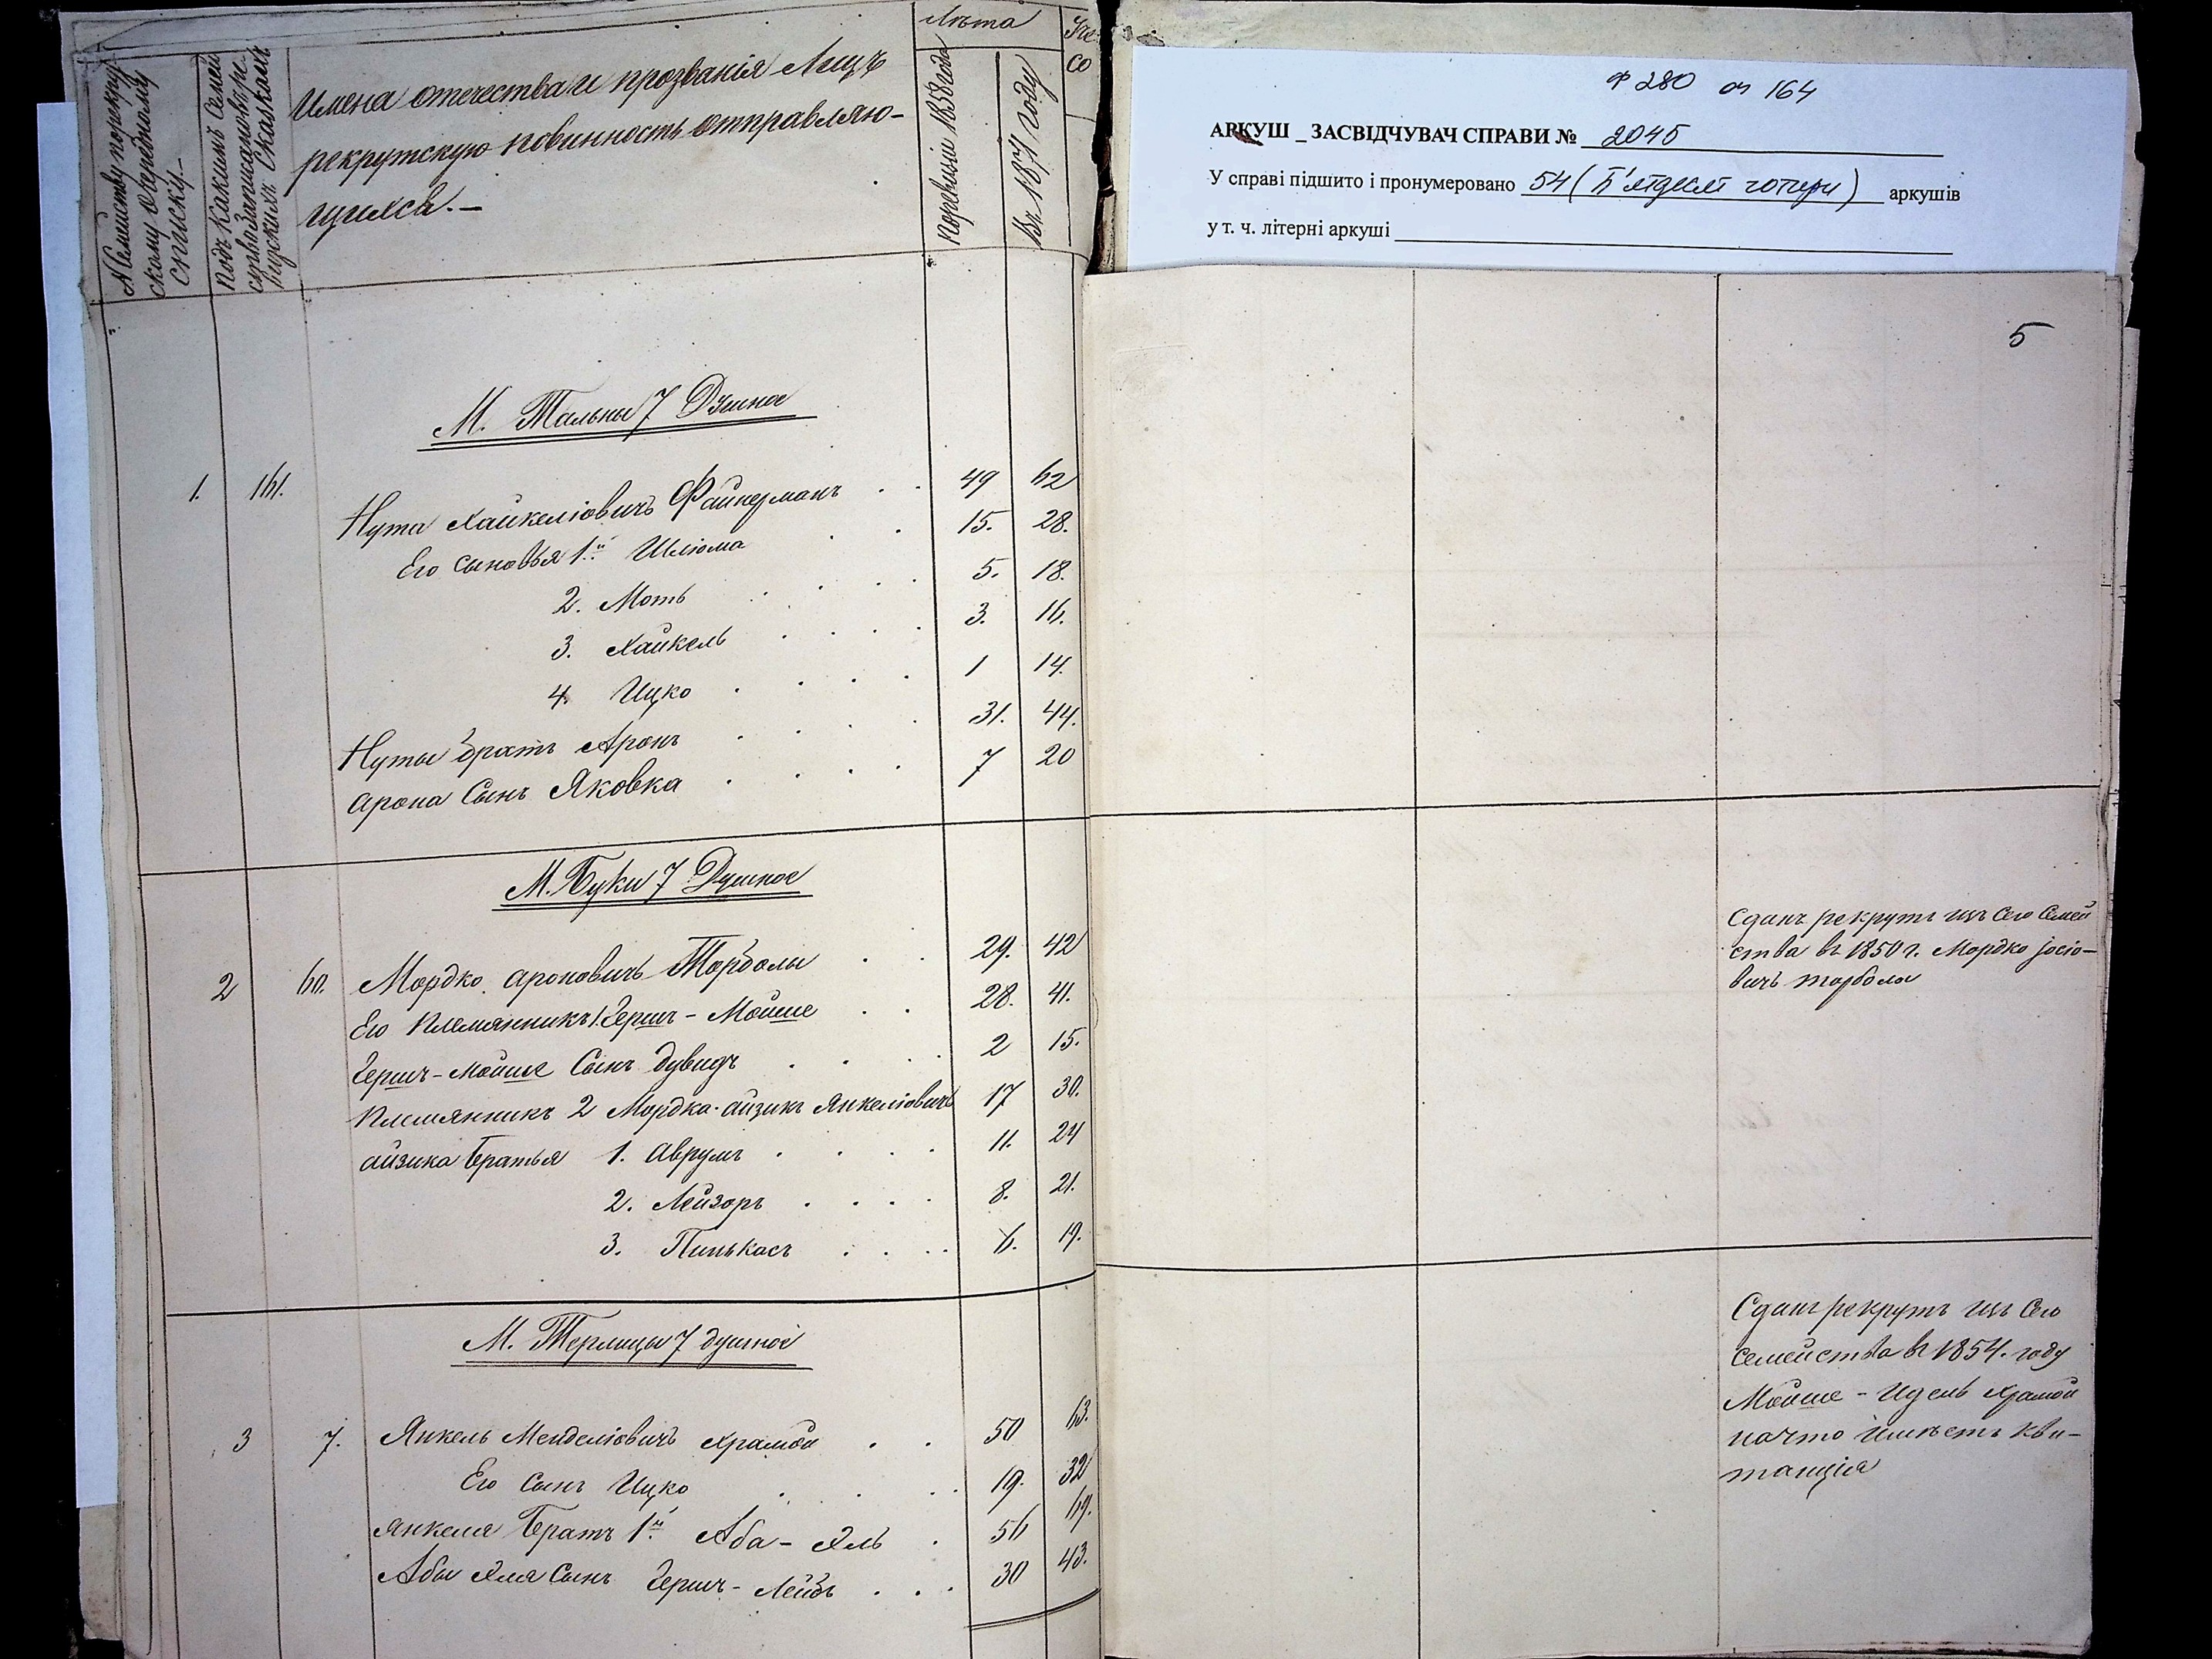 № Семействъ по рекрут-
скому очередному
списку.
Подъ какимъ Семей
ствъ записано въ ре-
визскихъ Сказкахъ
Имена отечества и прозванія Лицъ
рекрутскую повинность отправляю-
щихся.-
Лѣта
по ревизіи 1858 года
Въ 1871 году
М. Тальны 7 Душное
1. 161. Нута Хайкеліовичъ Файнерманъ . . 49 62
Его сыновья 1й Шлюма . . 15. 28.
2. Моть . . . . 5. 18.
3. Хайкель . . . . 3. 16.
4. Ицко . . . . 1 14.
Нуты братъ Аронъ . . . 31. 44.
Арона Сынъ Яковка . . . . 7 20
М. Буки 7 Душное
2 60. Мордко Ароновичъ Торболы . . 29. 42
Его Племянникъ 1. Гершъ-Мойше . . 28. 41.
Гершъ-Мойше Сынъ Дувидъ . . . . 2 15.
Племянникъ 2 Мордка-Айзикъ Янкеліовичъ 17 30.
Айзика братья 1. Аврумъ . . . . 11. 24
2. Лейзоръ . . . . 8. 21.
3. Пинькасъ . . . . 6. 19.
М. Терлицы 7 душное
3 7. Янкель Менделіовичъ Храмой . . 50 63.
Его Сынъ Ицко . . . . 19. 32
Янкеля братъ 1й Аба-Хль . 56 69.
Абы Хля Сынъ Гершъ-Лейбъ . . . 30 43.
Ф 280 оп 164
АРКУШ _ ЗАСВІДЧУВАЧ СПРАВИ № 2045
У справі підшито і пронумеровано 54 (П'ятдесят чотири) аркушів
у т. ч. літерні аркуші
5
Сданъ рекрутъ изъ Сего Семей
ства въ 1850 г. Мордко Јосіо-
вичъ Торбола
Сданъ рекрутъ изъ Сего
Семейства въ 1854. году
Мойше-Идель Храмой
на что имѣетъ кви-
танція